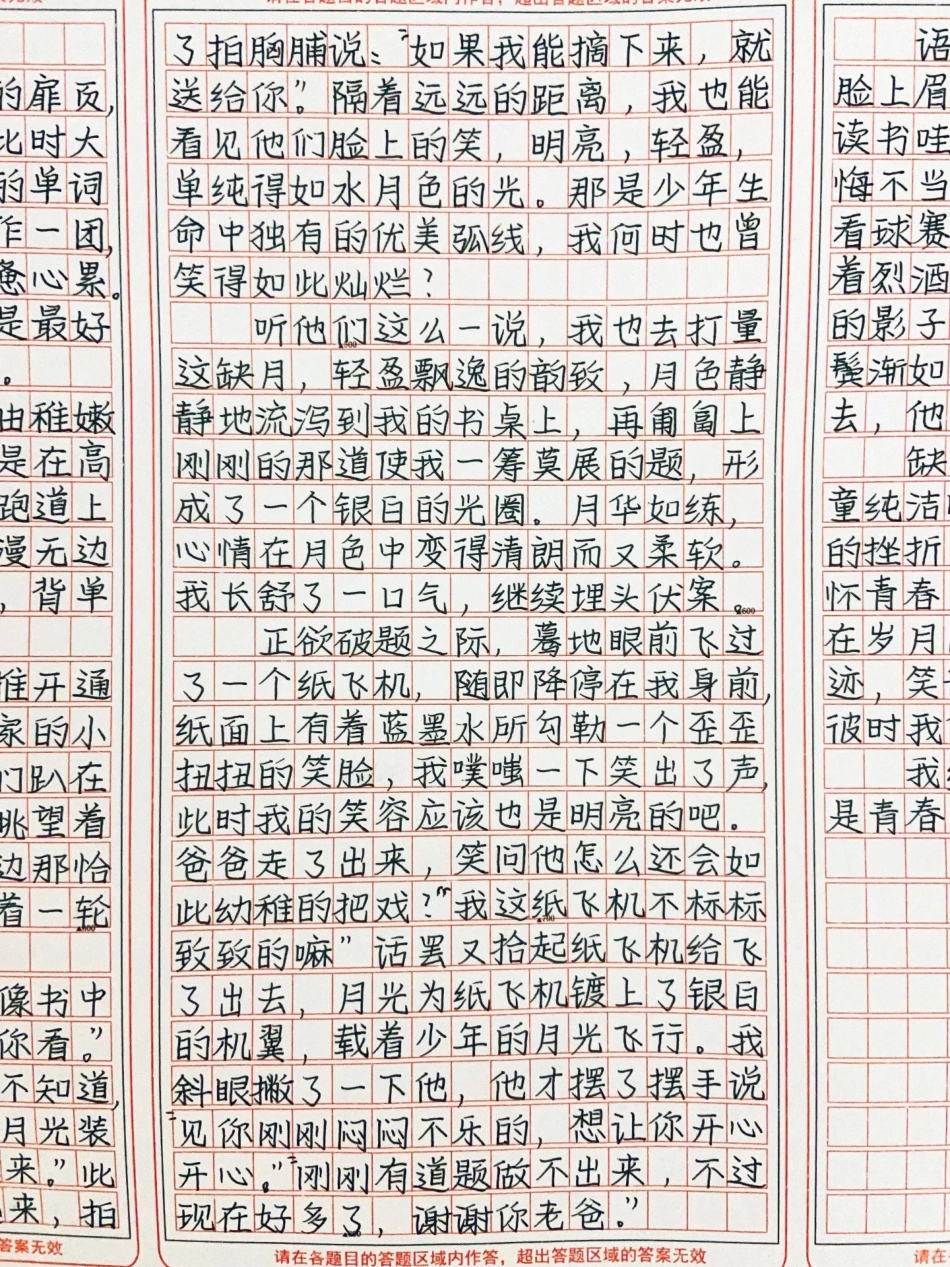 的扉页,
此时大
的单词
作一团,
惫心累。
是最好
。
由稚嫩
是在高
跑道上
漫无边
，背单
推开通
家的小
们趴在
眺望着
边那恰
着一轮
像书中
你看。”
不知道,
月光装
来。”此
来，拍
答案无效
请在各题目的答题区域内作答，超出答题区域的答案无效
了拍胸脯说："如果我能摘下来，就
送给你”。隔着远远的距离，我也能
看见他们脸上的笑，明亮，轻盈，
单纯得如水月色的光。那是少年生
命中独有的优美弧线，我何时也曾
笑得如此灿烂？
听他们这么一说，我也去打量
这缺月，轻盈飘逸的韵致，月色静
静地流泻到我的书桌上，再匍匐上
刚刚的那道使我一筹莫展的题，形
成了一个银白的光圈。月华如练，
心情在月色中变得清朗而又柔软。
我长舒了一口气，继续埋头伏案。
600
正欲破题之际，蓦地眼前飞过
了一个纸飞机，随即降停在我身前,
纸面上有着蓝墨水所勾勒一个歪歪
扭扭的笑脸，我噗嗤一下笑出了声,
此时我的笑容应该也是明亮的吧。
爸爸走了出来，笑问他怎么还会如
此幼稚的把戏？"我这纸飞机不标标
700
致致的嘛”话罢又拾起纸飞机给飞
了出去，月光为纸飞机镀上了银白
的机翼，载着少年的月光飞行。我
斜眼撇了一下他，他才摆了摆手说
"见你刚刚闷闷不乐的，想让你开心
开心。”"刚刚有道题做不出来，不过
现在好多了，谢谢你老爸。”
请在各题目的答题区域内作答，超出答题区域的答案无效
语
脸上眉
读书哇
悔不当
看球赛
着烈酒
的影子
鬓渐如
去，他
缺
童纯洁
的挫折
怀青春
在岁月
迹，笑
彼时我
我
是青春
请在